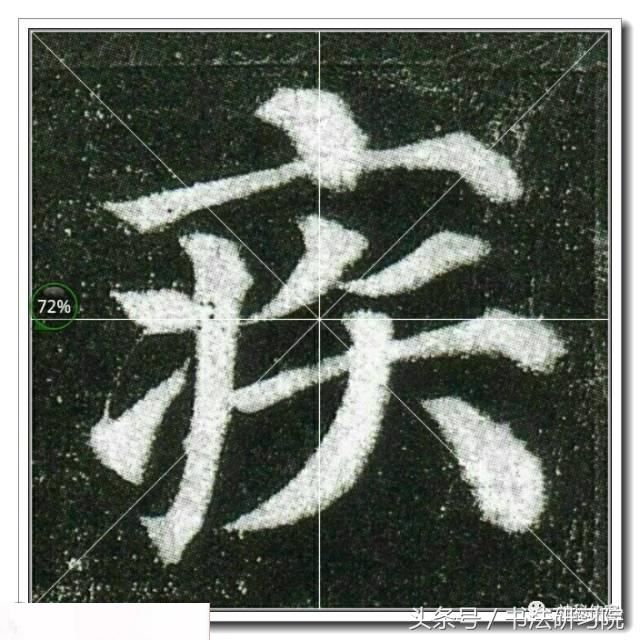 疾
72%
头条号 / 书法研习院